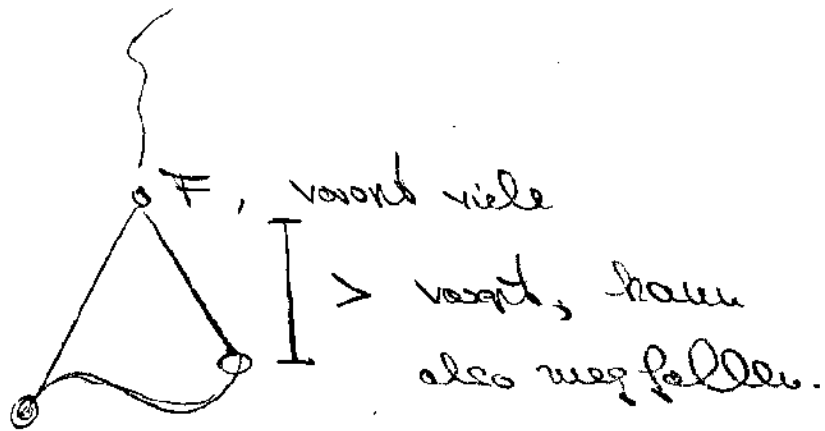 F, vorgt viele
> vorgt, kann
also wegfallen.